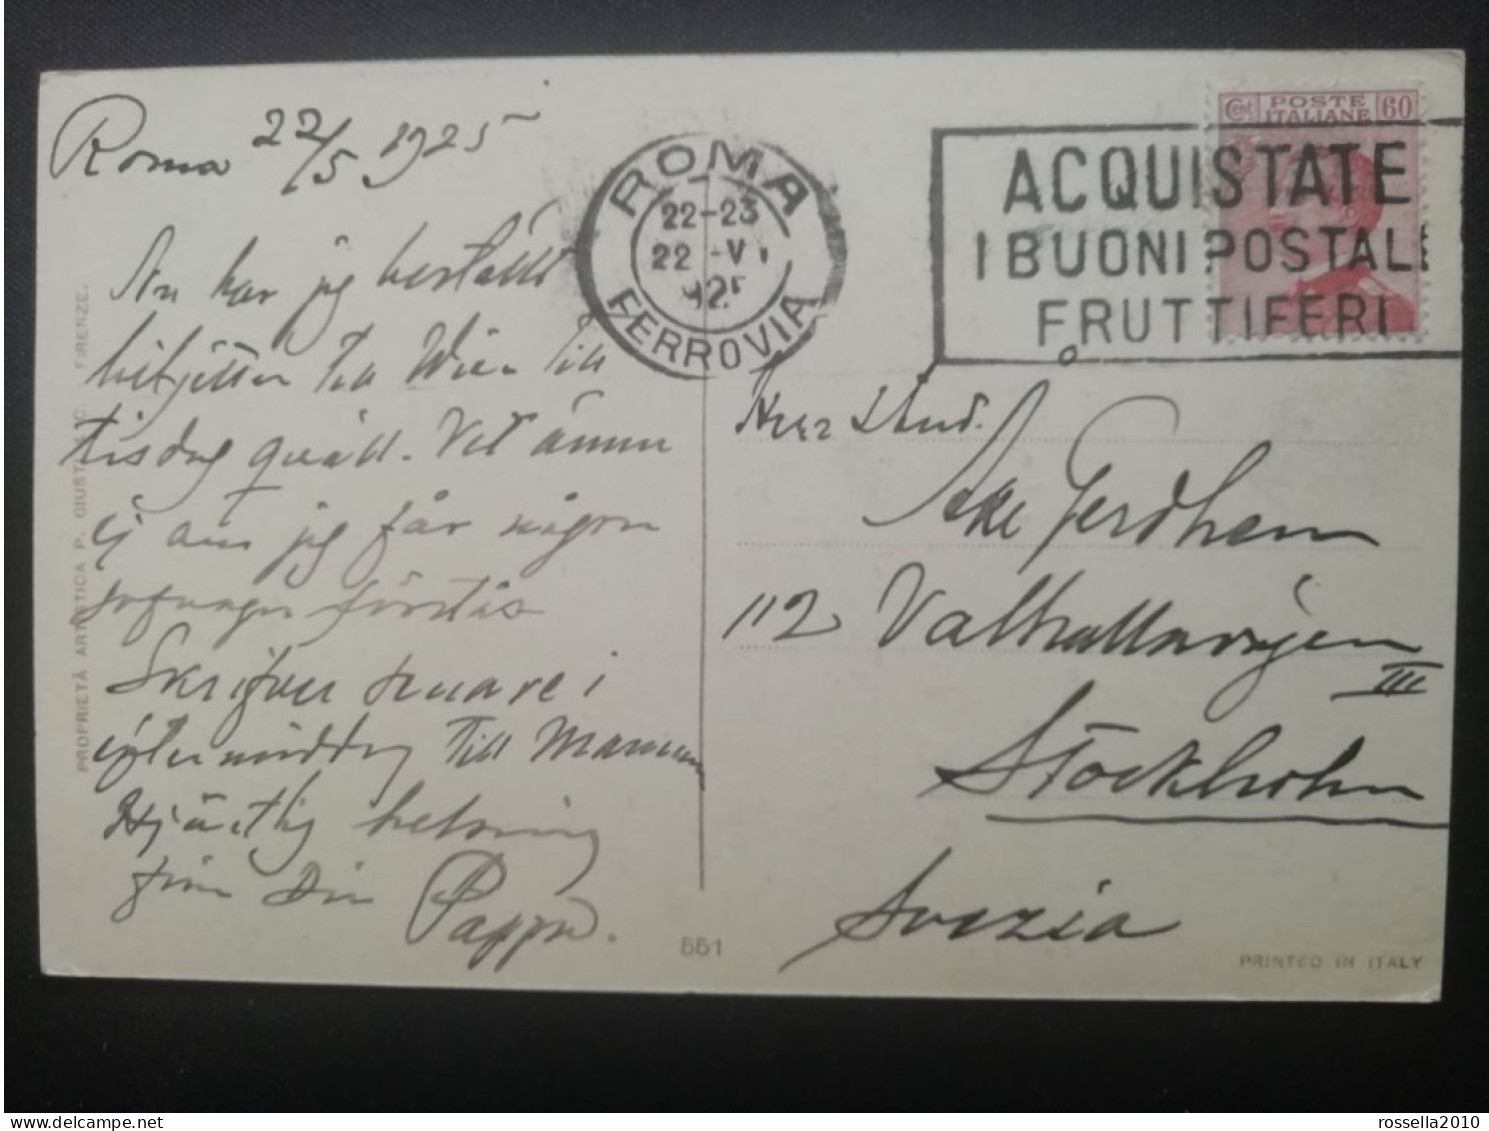 Roma 22/5 1925
Nu har jag beställt
biljetter till Wien till
tisdag qväll. Vet ännu
ej om jag får någon
förstås
Skrifver snare i
eftermiddag till Mamma
Hjärtlig helsning
från Din Pappa.
PROPRIETÀ ARTISTICA P. GIUSTI C. FIRENZE.
551
ROMA
22-23
22 -V
925
FERROVIA
ACQUISTATE
I BUONI POSTALI
FRUTTIFERI
Cent POSTE ITALIANE 60
Herr Stud.
Åke Gerdhem
112 Valhallavägen
III
Stockholm
Svezia
PRINTED IN ITALY
rossella2010